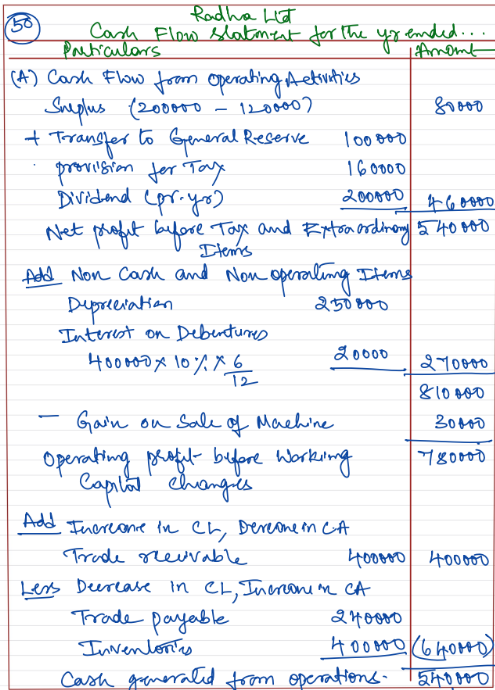 50
Radha Ltd
Cash Flow Statment for the yr ended...
Particulars Amount
(A) Cash Flow from Operating Activities
Surplus (200000 - 120000) 80000
+ Transfer to General Reserve 100000
provision for Tax 160000
Dividend (pr. yr) 200000 460000
Net profit before Tax and Extraordinary 540000
Items
Add Non Cash and Non operating Items
Depreciation 250000
Interest on Debentures
400000 x 10% x 6/12 20000 270000
810000
- Gain on Sale of Machine 30000
Operating profit before Working 780000
Capital changes
Add Increase in CL, Decrease in CA
Trade receivable 400000 400000
Less Decrease in CL, Increase in CA
Trade payable 240000
Inventories 400000 (640000)
Cash generated from operations. 540000